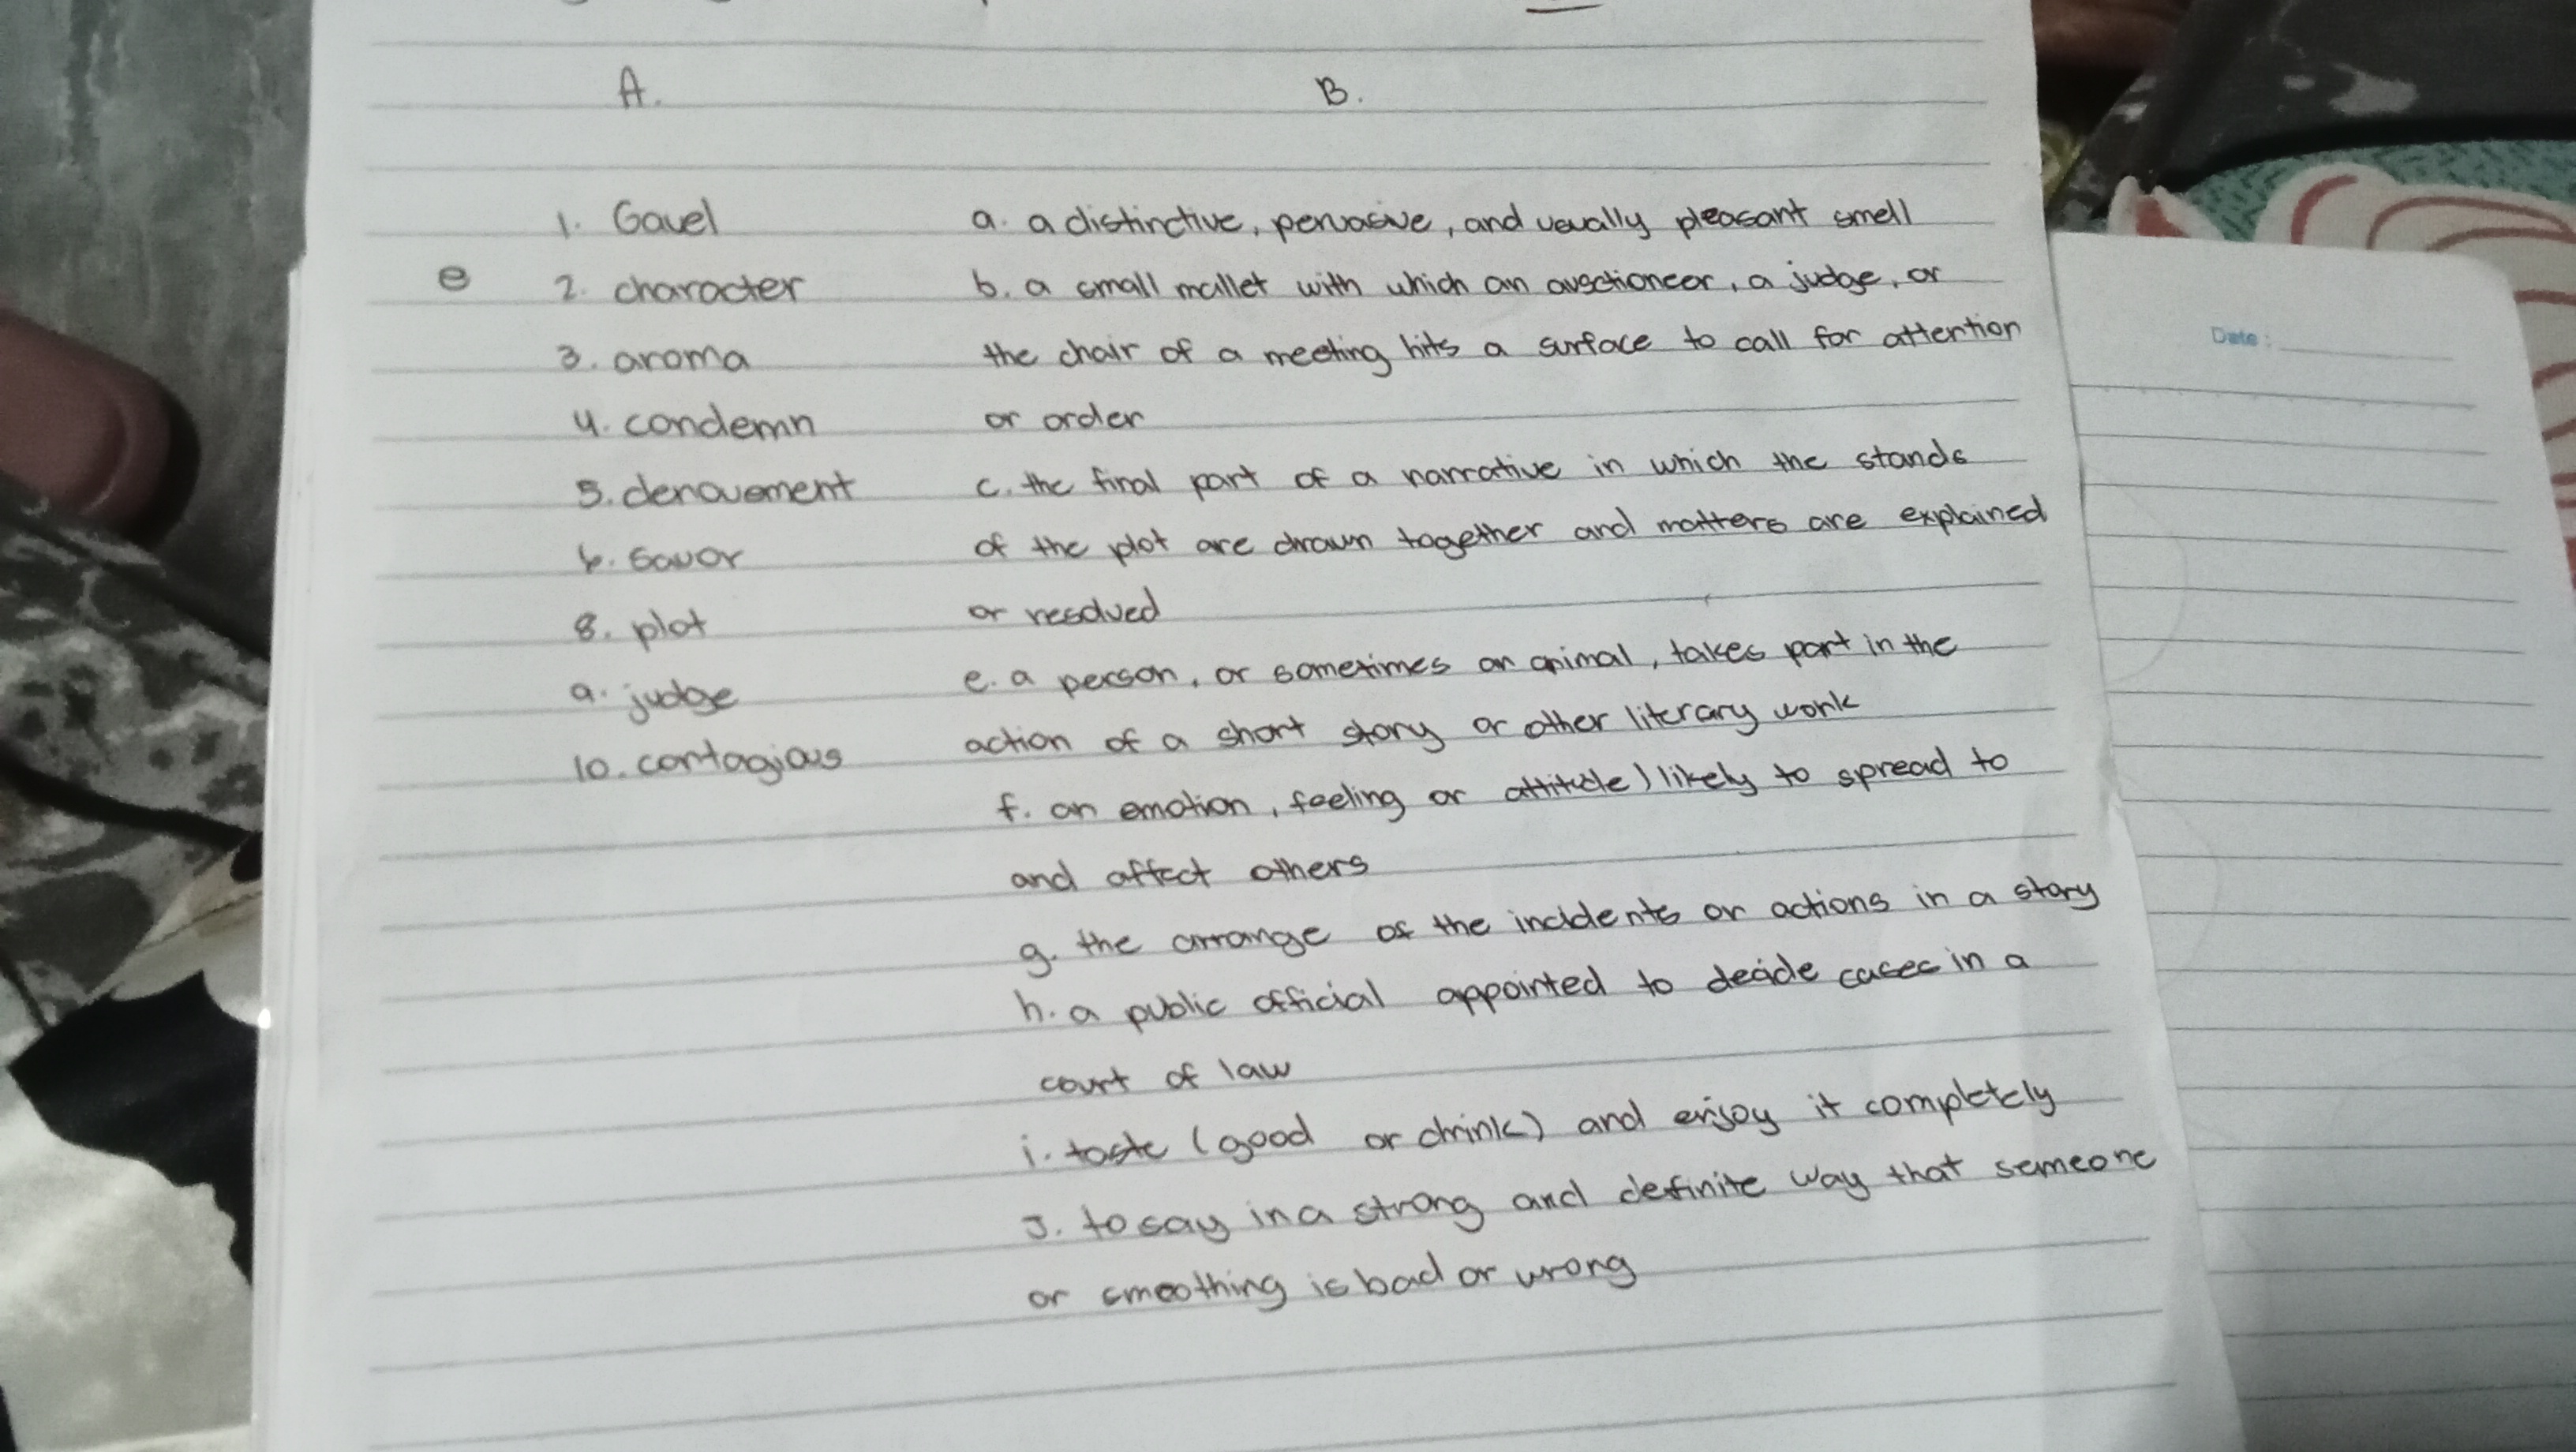 A. B.
1. Gavel a. a distinctive, pervasive, and usually pleasant smell
e 2. character b. a small mallet with which an auctioneer, a judge, or
3. aroma the chair of a meeting hits a surface to call for attention
4. condemn or order
5. denouement c. the final part of a narrative in which the stands
6. Savor of the plot are drawn together and matters are explained
8. plot or resolved
9. judge e. a person, or sometimes an animal, takes part in the
10. contagious action of a short story or other literary work
f. an emotion, feeling or attitude) likely to spread to
and affect others
g. the arrange of the incidents or actions in a story
h. a public official appointed to decide cases in a
court of law
i. taste (good or drink) and enjoy it completely
J. to say in a strong and definite way that someone
or smoothing is bad or wrong
Date: